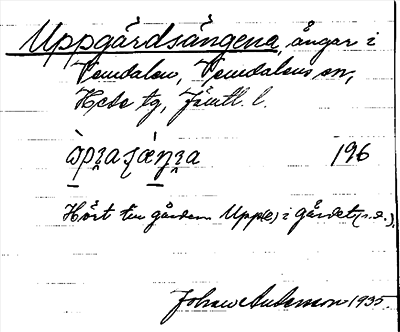 Uppgårdsängena, ängar i
Vemdalen, Vemdalens sn,
Hede tg, Jämtl. l.
196
Hört till gården Upp(e) i gårdet (s.d.).
Johan Anderson 1935